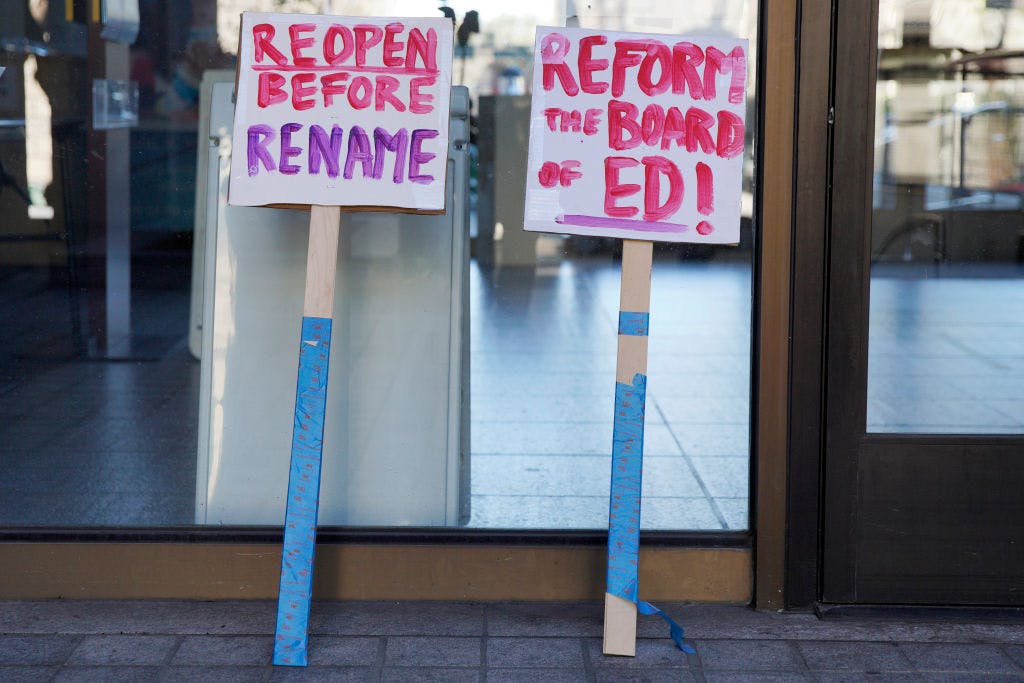 REOPEN
BEFORE
RENAME
REFORM
THE BOARD
OF ED!